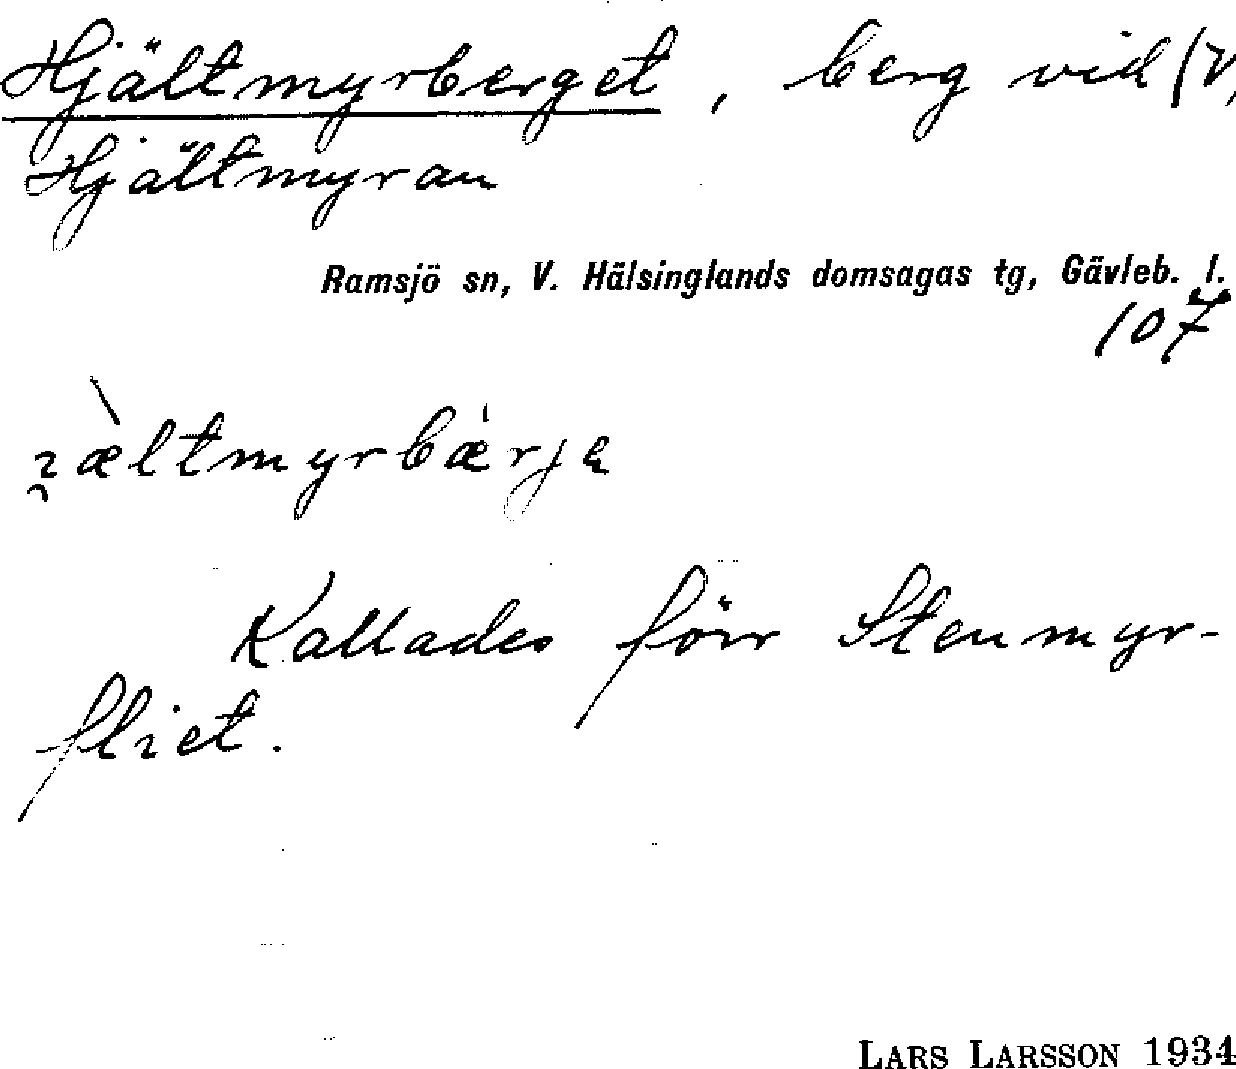 Hjältmyrberget, berg vid (V,
Hjältmyran
Ramsjö sn, V. Hälsinglands domsagas tg, Gävleb. l.
107
Kallades förr Stenmyr-
fliet.
LARS LARSSON 1934